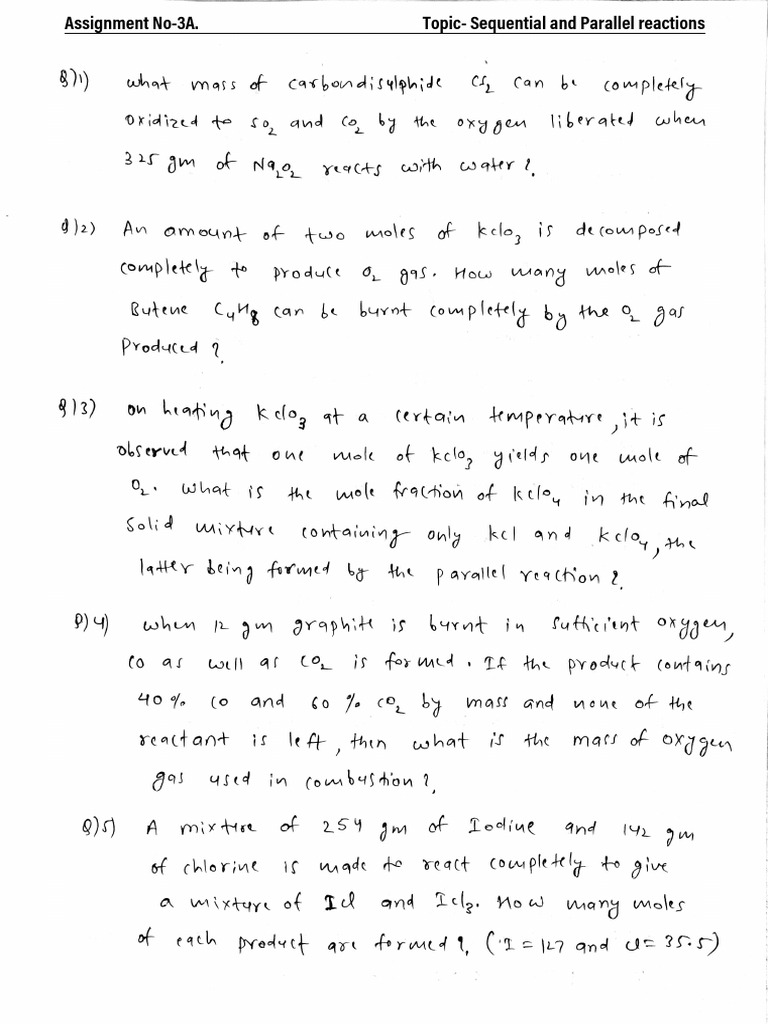 Assignment No-3A. Topic- Sequential and Parallel reactions
Q)1) what mass of carbondisulphide CS2 can be completely
oxidized to SO2 and CO2 by the oxygen liberated when
325 gm of Na2O2 reacts with water?
Q)2) An amount of two moles of KClO3 is decomposed
completely to produce O2 gas. How many moles of
Butene C4H8 can be burnt completely by the O2 gas
Produced?
Q)3) on heating KClO3 at a certain temperature, it is
observed that one mole of KClO3 yields one mole of
O2. What is the mole fraction of KClO4 in the final
Solid mixture containing only KCl and KClO4, the
latter being formed by the parallel reaction?
Q)4) when 12 gm graphite is burnt in sufficient oxygen,
CO as well as CO2 is formed. If the product contains
40% CO and 60% CO2 by mass and none of the
reactant is left, then what is the mass of oxygen
gas used in combustion?
Q)5) A mixture of 254 gm of Iodine and 142 gm
of chlorine is made to react completely to give
a mixture of ICl and ICl3. How many moles
of each product are formed? (I = 127 and Cl = 35.5)